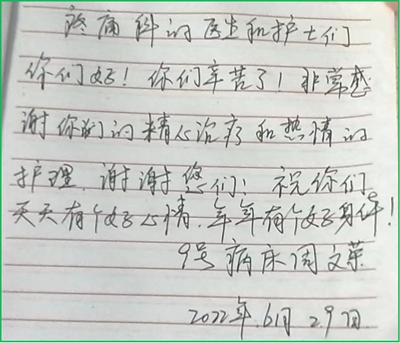 疼痛科的医生和护士们
你们好！你们辛苦了！非常感
谢你们的精心治疗和热情的
护理，谢谢您们！祝你们。
天天有个好心情，年年有个好身体！
9号病床周文荣
2022年6月29日